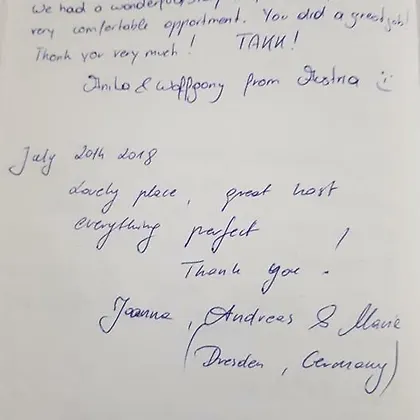 We had a wonderful
very comfortable apportment. You did a great job!
Thank you very much! TAKK!
Anita & Wolfgang from Austria :)
July 20th 2018
Lovely place, great host
everything perfect !
Thank you.
Joanna, Andreas & Marie
(Dresden, Germany)